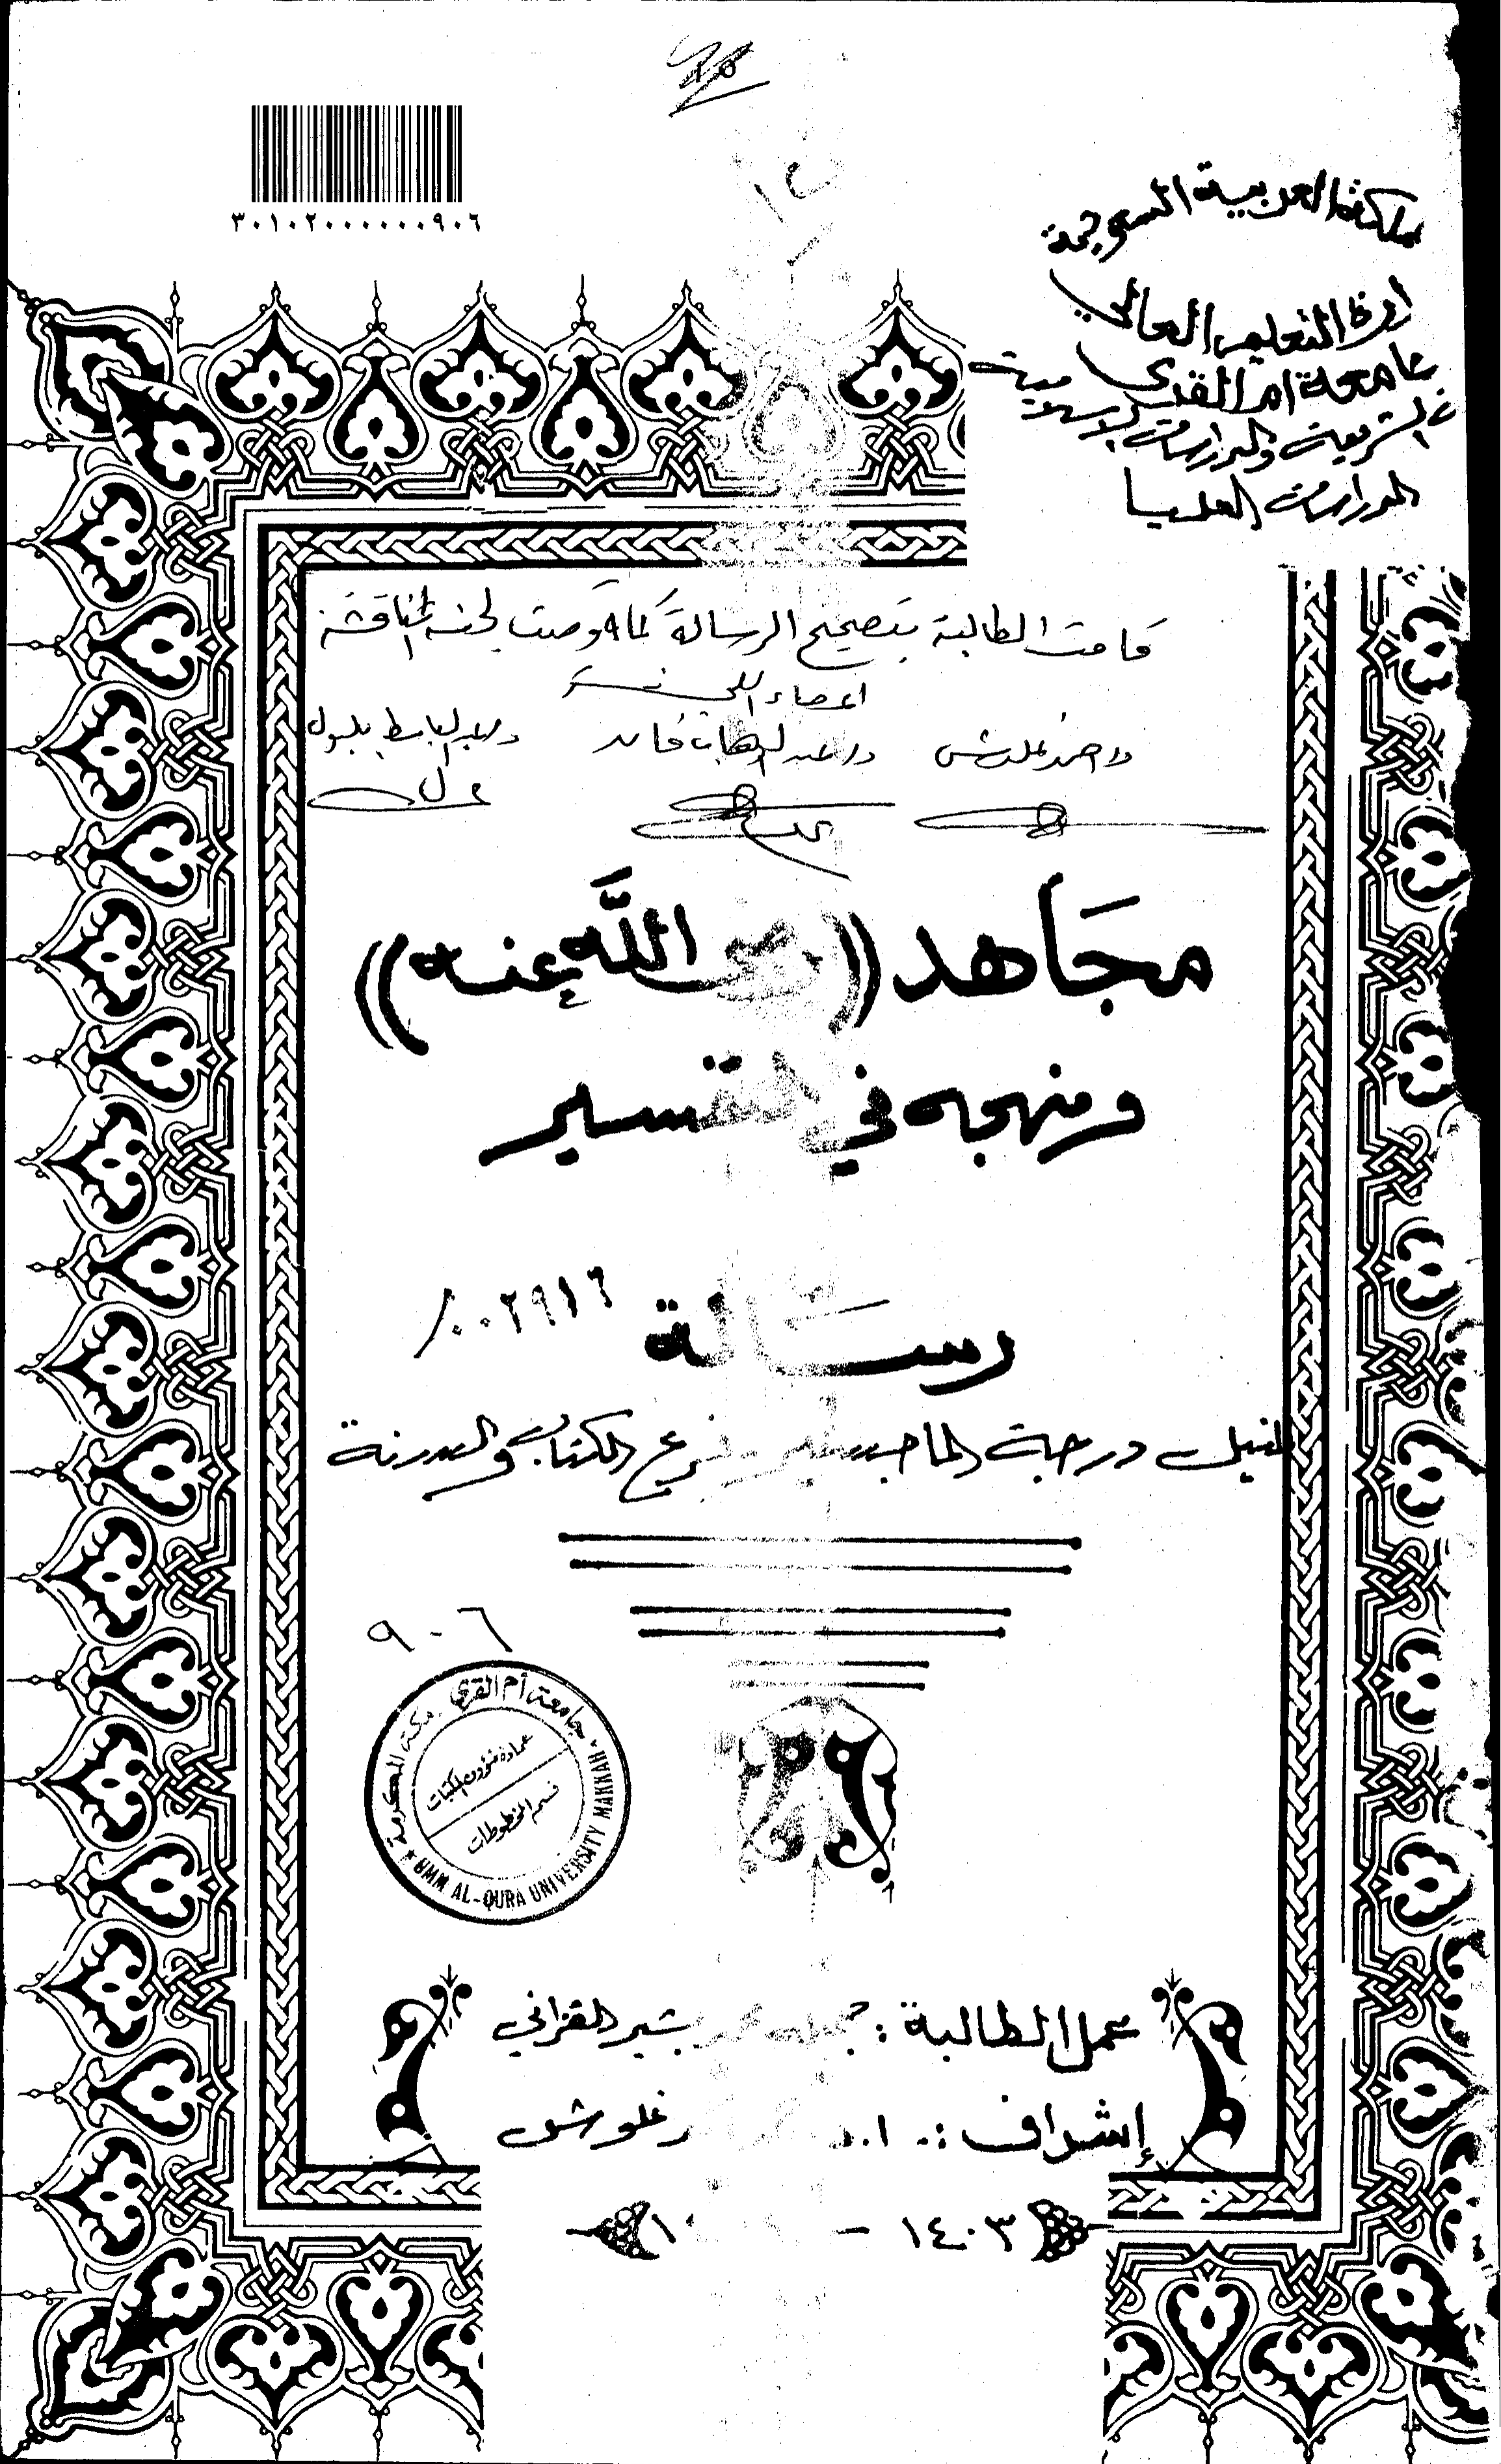 ٣٠١٠٢٠٠٠٠٠٠٩٠٦
المملكة العربية السعودية
وزارة التعليم العالي
جامعة أم القرى
الشريعة والدراسات الإسلامية
الدراسات العليا
قامت الطالبة بتصحيح الرسالة كما أوصت لجنة المناقشة
أعضاء اللجنة
د/ أحمد غلوش د/ عبد الوهاب فايد د/ عبد الباسط بلبول
مجَاهد ((رضي اللَّه عنه))
ومنهجه في التفسير
رسَالة
٠٠٢٩١٦
لنيل درجة الماجستير فرع الكتاب والسنة
٩٠٦
جامعة أم القرى مكة المكرمة
عمادة شؤون المكتبات
قسم المخطوطات
UMM AL-QURA UNIVERSITY MAKKAH
عمل الطالبة : محمد بشير القزاني
إشراف :. ا.د غلوش
١٤٠٣ -